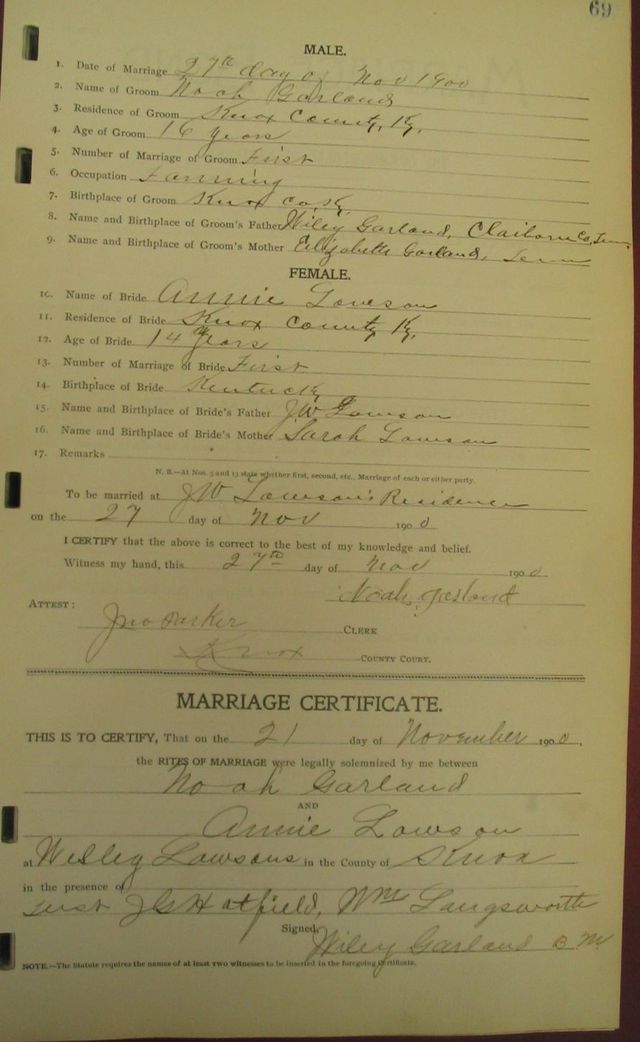 69
MALE.
1. Date of Marriage 27th day of Nov 1900
2. Name of Groom Noah Garland
3. Residence of Groom Knox County, Ky.
4. Age of Groom 16 years
5. Number of Marriage of Groom First
6. Occupation Farming
7. Birthplace of Groom Knox Co Ky
8. Name and Birthplace of Groom's Father Wiley Garland, Claiborne Co, Tenn
9. Name and Birthplace of Groom's Mother Elizabeth Garland, Tenn
FEMALE.
10. Name of Bride Annie Lawson
11. Residence of Bride Knox County Ky,
12. Age of Bride 14 years
13. Number of Marriage of Bride First
14. Birthplace of Bride Kentucky
15. Name and Birthplace of Bride's Father JW Lawson
16. Name and Birthplace of Bride's Mother Sarah Lawson
17. Remarks
N. B.—At Nos. 5 and 13 state whether first, second, etc., Marriage of each or either party.
To be married at JW Lawson's Residence
on the 27 day of Nov 1900
I CERTIFY that the above is correct to the best of my knowledge and belief.
Witness my hand, this 27th day of Nov 1900
Noah Garland
ATTEST:
Jno Parker CLERK
Knox COUNTY COURT.
MARRIAGE CERTIFICATE.
THIS IS TO CERTIFY, That on the 21 day of November 1900,
the RITES OF MARRIAGE were legally solemnized by me between
Noah Garland
AND
Annie Lawson
at Wesley Lawsons in the County of Knox
in the presence of
J G Hatfield, Wm Langsworth
Signed, Wiley Garland B M
NOTE.—The Statute requires the names of at least two witnesses to be inserted in the foregoing Certificate.